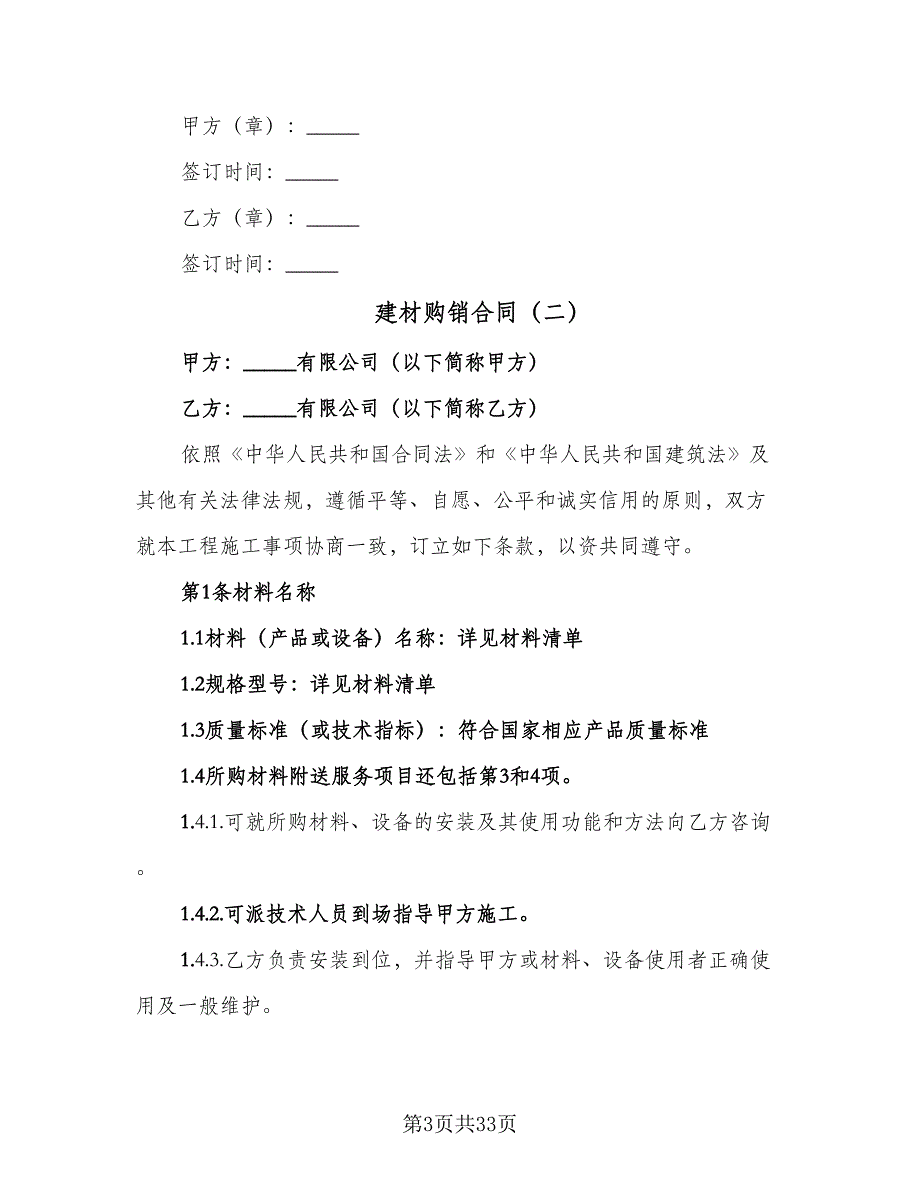 甲方（章）：_____
签订时间：_____
乙方（章）：_____
签订时间：_____
建材购销合同（二）
甲方：_____有限公司（以下简称甲方）
乙方：_____有限公司（以下简称乙方）
依照《中华人民共和国合同法》和《中华人民共和国建筑法》及
其他有关法律法规，遵循平等、自愿、公平和诚实信用的原则，双方
就本工程施工事项协商一致，订立如下条款，以资共同遵守。
第1条材料名称
1.1材料（产品或设备）名称：详见材料清单
1.2规格型号：详见材料清单
1.3质量标准（或技术指标）：符合国家相应产品质量标准
1.4所购材料附送服务项目还包括第3和4项。
1.4.1.可就所购材料、设备的安装及其使用功能和方法向乙方咨询
。
1.4.2.可派技术人员到场指导甲方施工。
1.4.3.乙方负责安装到位，并指导甲方或材料、设备使用者正确使
用及一般维护。
第3页共33页